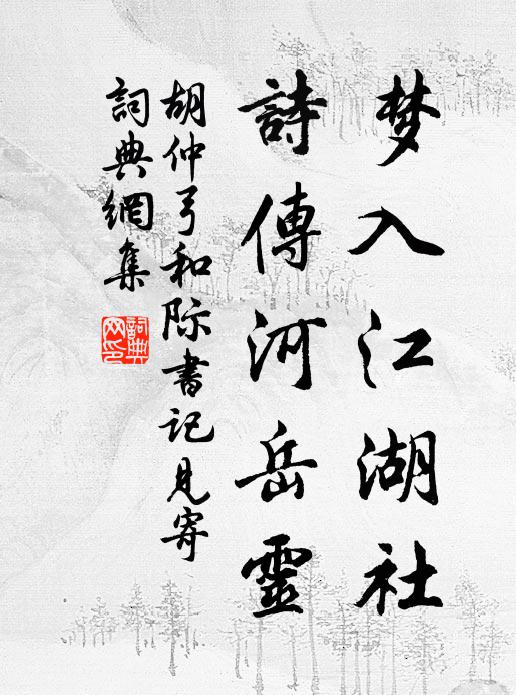 梦入江湖社
詩傳河岳靈
胡仲弓和际書记見寄
詞典網集
詞典网印